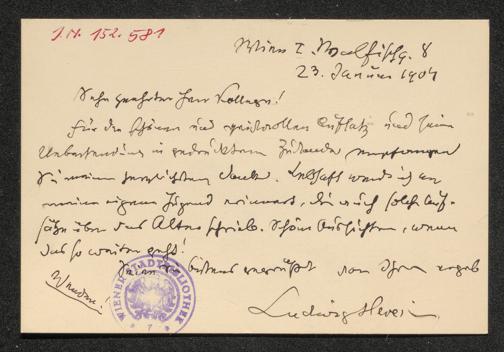 J.N. 152.581
Wien I. Wallfischg. 8
23. Januar 1904
Sehr geehrter Herr Kollege!
Für den schönen und geistvollen Aufsatz und seine
Uebersendung in gedrucktem Zustande empfangen
Sie meinen herzlichsten Dank. Lebhaft werde ich an
meine eigene Jugend erinnert, die auch solche Auf-
sätze über das Alter schrieb. Schöne Aussichten, wenn
das so weiter geht!
bestens gegrüßt von Ihrem ergeb
Wenden!
Ludwig Hevesi
WIENER STADTBIBLIOTHEK